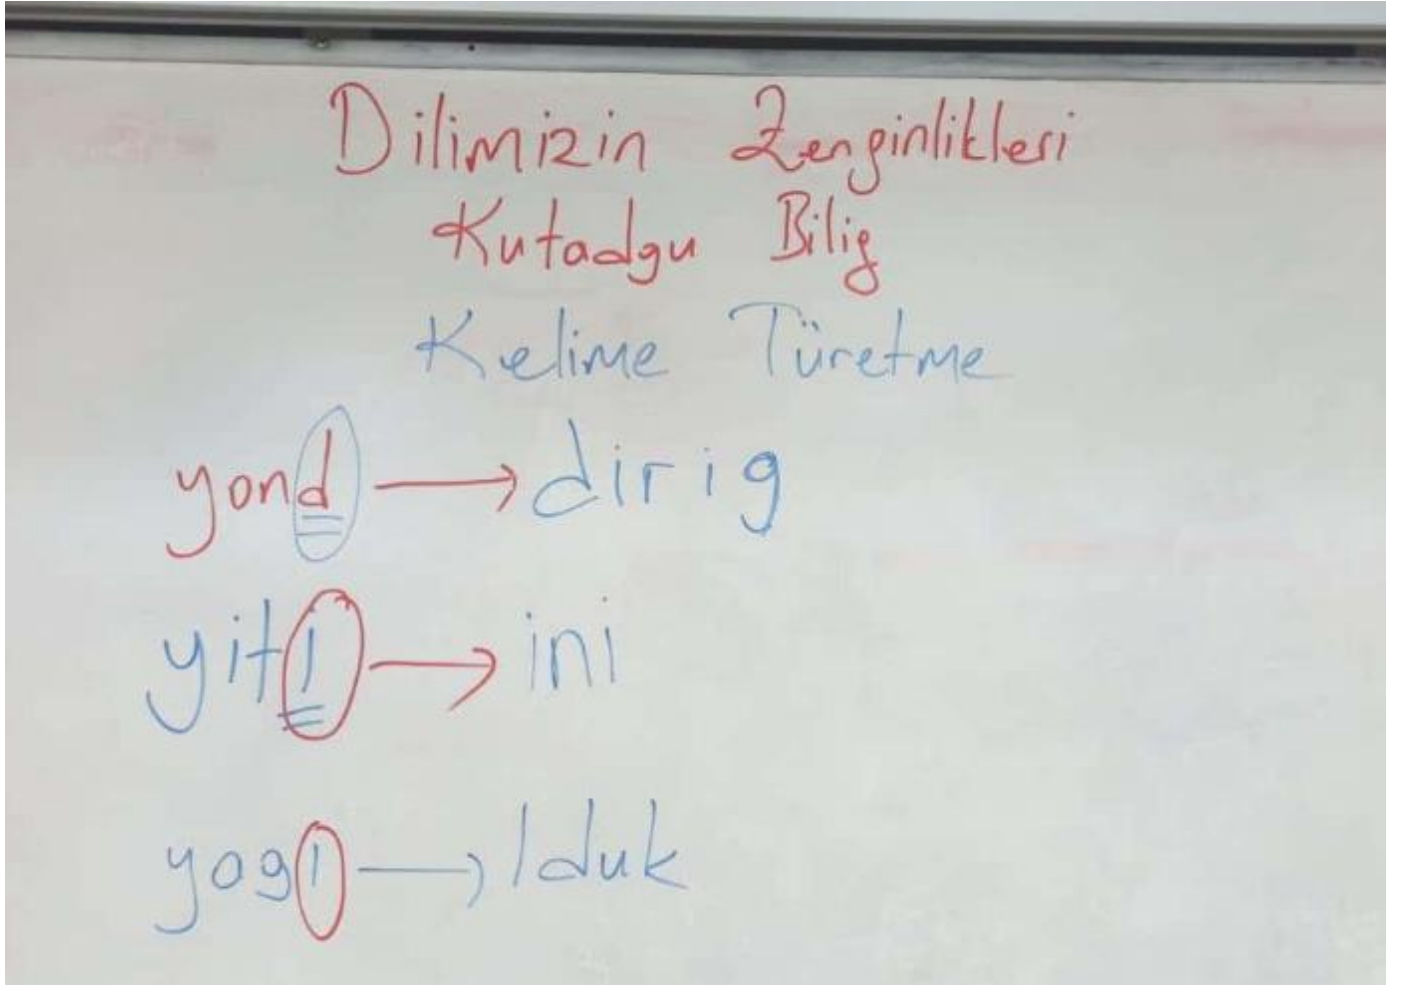 Dilimizin Zenginlikleri
Kutadgu Bilig
Kelime Türetme
yond → dirig
yiti → ini
yogı → Iduk